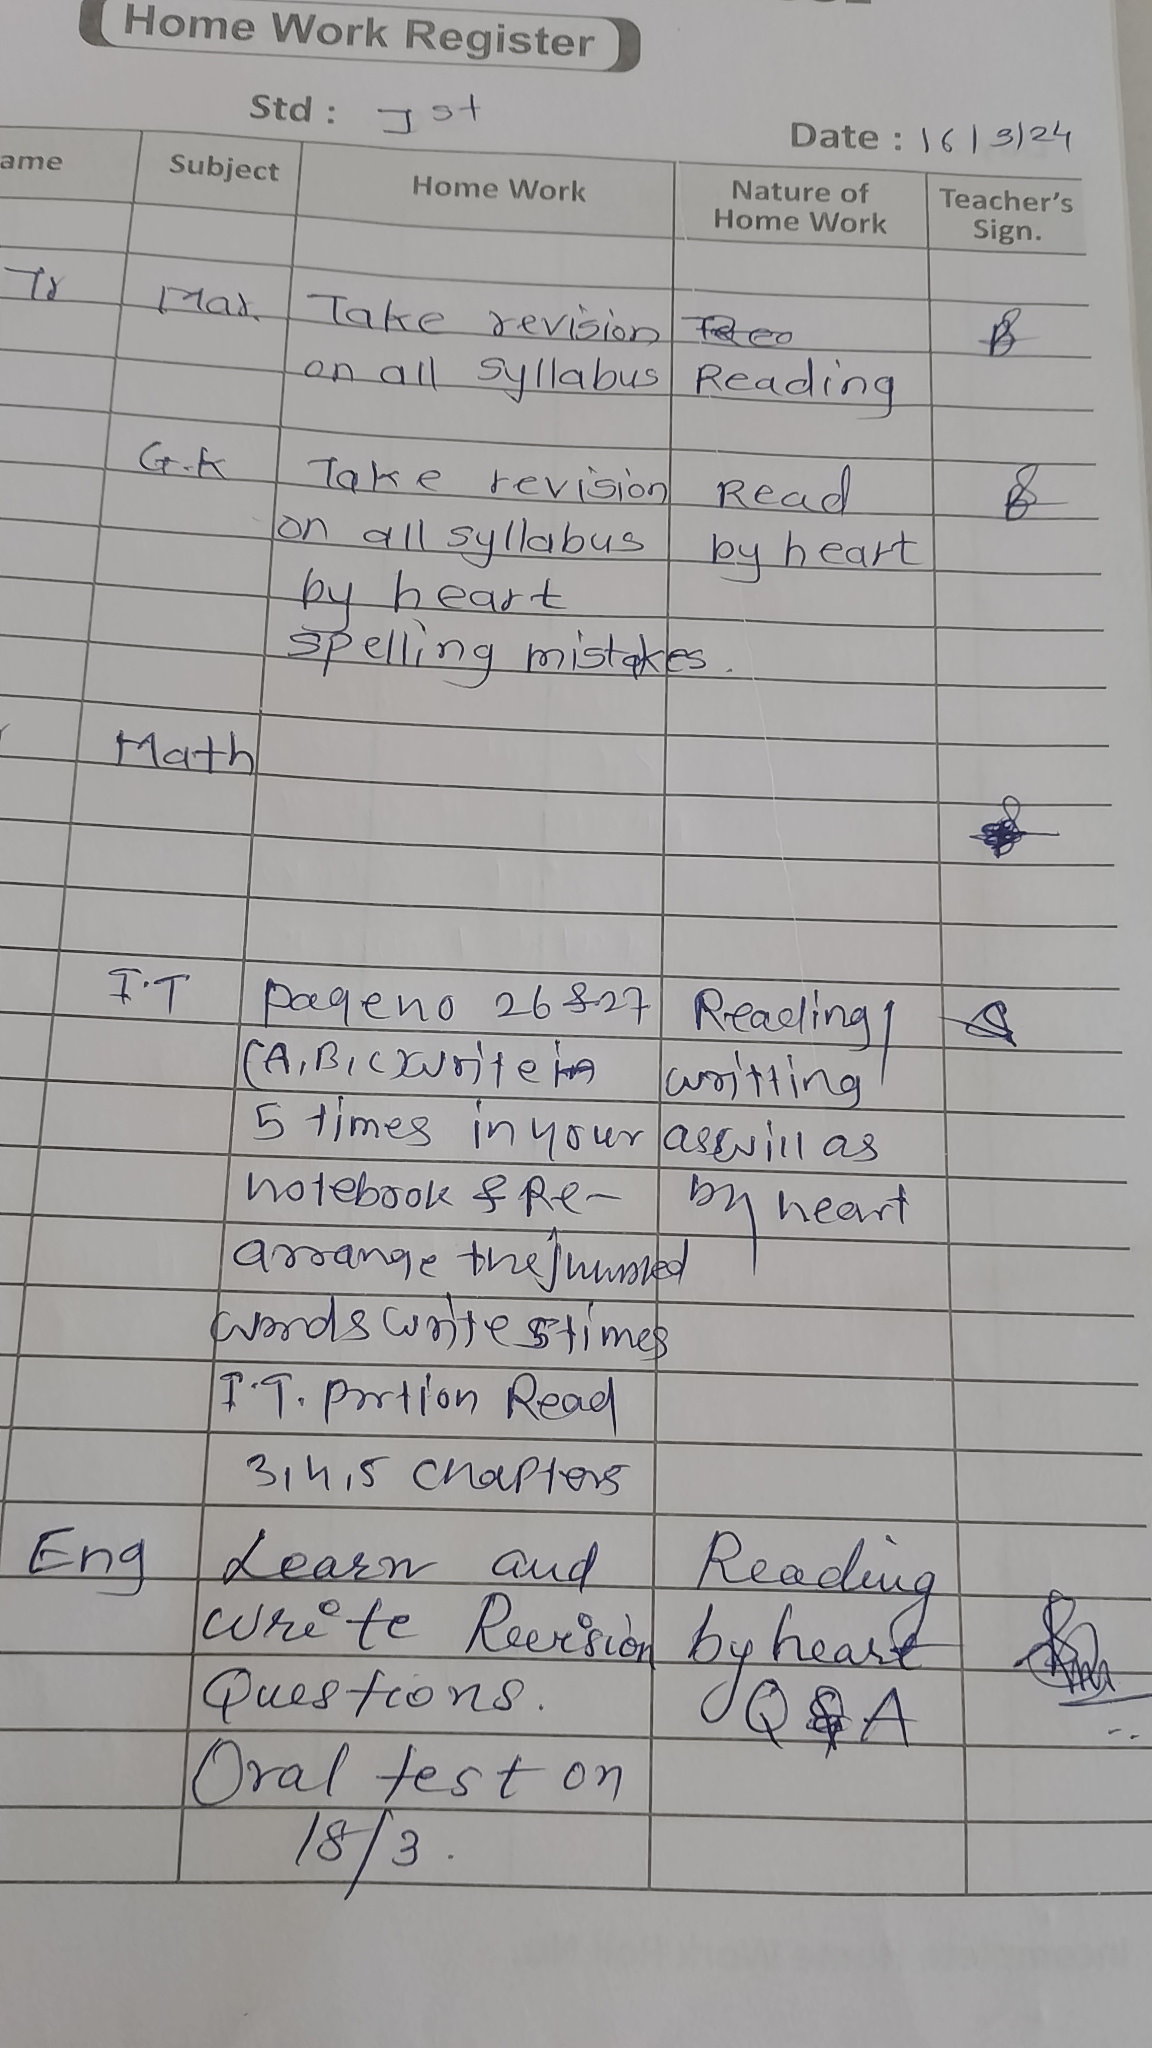 Home Work Register
Std : Ist
Date : 16/3/24
ame Subject Home Work Nature of Home Work Teacher's Sign.
Tr Mar. Take revision
on all syllabus Reading
G.K Take revision Read
on all syllabus by heart
by heart
spelling mistakes.
Math
I.T page no 26 & 27 Reading/
(A,B,C) write in writting
5 times in your aswill as
notebook & Re- by heart
arrange the jumbled
words write 5 times
I.T. portion Read
3,4,5 chapters
Eng Learn and Reading
write Revision by heart
Questions. Q & A
Oral test on
18/3.